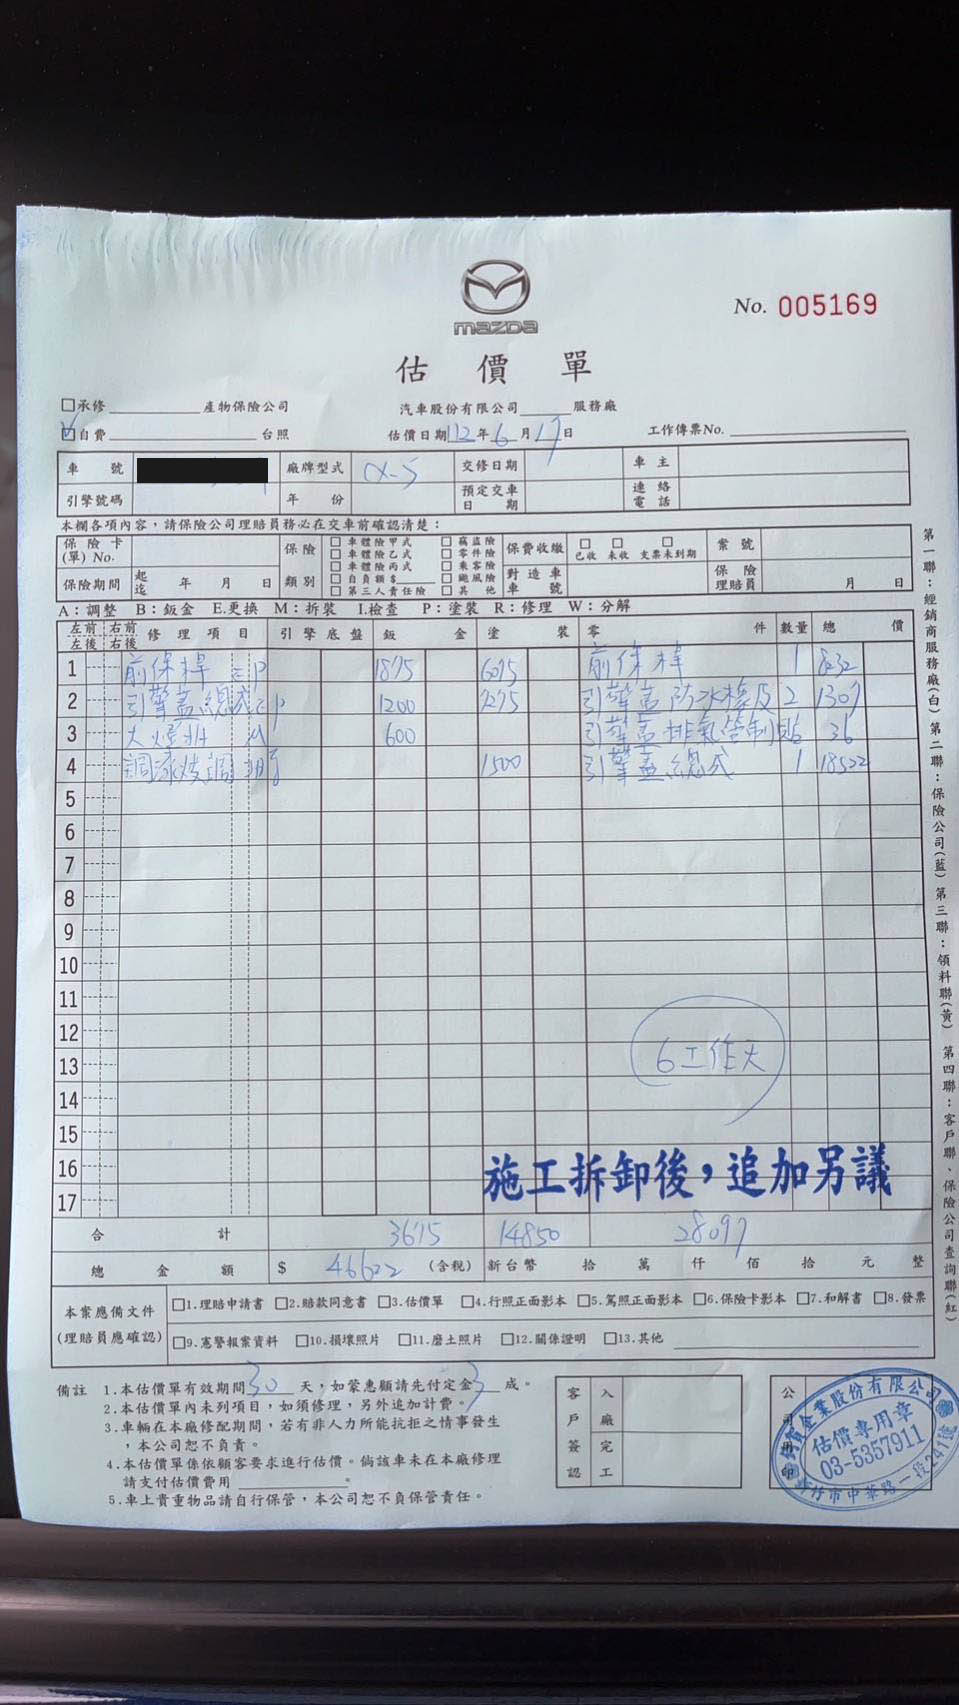 mazda
No. 005169
估價單
□承修 產物保險公司 汽車股份有限公司 服務廠
□自費 台照 估價日期 112 年 6 月 17 日 工作傳票No.
車號 廠牌型式 CX-5 交修日期 車主
引擎號碼 年份 預定交車日期 連絡電話
本欄各項內容,請保險公司理賠員務必在交車前確認清楚:
保險卡(單)No. 保險類別 □車體險甲式 □竊盜險 保費收繳 □已收 □未收 □支票未到期 案號
□車體險乙式 □零件險
□車體險丙式 □乘客險
保險期間 起迄 年 月 日 □自負額$ □颱風險 對造車車號 保險理賠員 月 日
□第三人責任險 □其他
A:調整 B:鈑金 E.更換 M:拆裝 I.檢查 P:塗裝 R:修理 W:分解
左前 右前 左後 右後 修理項目 引擎底盤 鈑金 塗裝 零件 數量 總價
1 前保桿 E P 1875 6075 前保桿 1 8232
2 引擎蓋總成 E P 1200 7275 引擎蓋防水橡皮 2 1307
3 大燈拆 600 引擎蓋排氣管制貼 36
4 調漆烤調 1500 引擎蓋總成 1 18522
5
6
7
8
9
10
11
12
13 6工作天
14
15
16 施工拆卸後,追加另議
17
合計 3675 14850 28097
總金額 $ 46622 (含稅) 新台幣 拾 萬 仟 佰 拾 元 整
本案應備文件(理賠員應確認) □1.理賠申請書 □2.賠款同意書 □3.估價單 □4.行照正面影本 □5.駕照正面影本 □6.保險卡影本 □7.和解書 □8.發票
□9.憲警報案資料 □10.損壞照片 □11.磨土照片 □12.關係證明 □13.其他
備註 1.本估價單有效期間 30 天,如蒙惠顧請先付定金 3 成。
2.本估價單內未列項目,如須修理,另外追加計費。
3.車輛在本廠修配期間,若有非人力所能抗拒之情事發生
,本公司恕不負責。
4.本估價單係依顧客要求進行估價。倘該車未在本廠修理
請支付估價費用 。
5.車上貴重物品請自行保管,本公司恕不負保管責任。
客戶簽認 入廠 完工
公司用印
企業股份有限公司
估價專用章
03-5357911
新竹市中華路一段241號
第一聯:經銷商服務廠(白) 第二聯:保險公司(藍) 第三聯:領料聯(黃) 第四聯:客戶聯、保險公司查詢聯(紅)